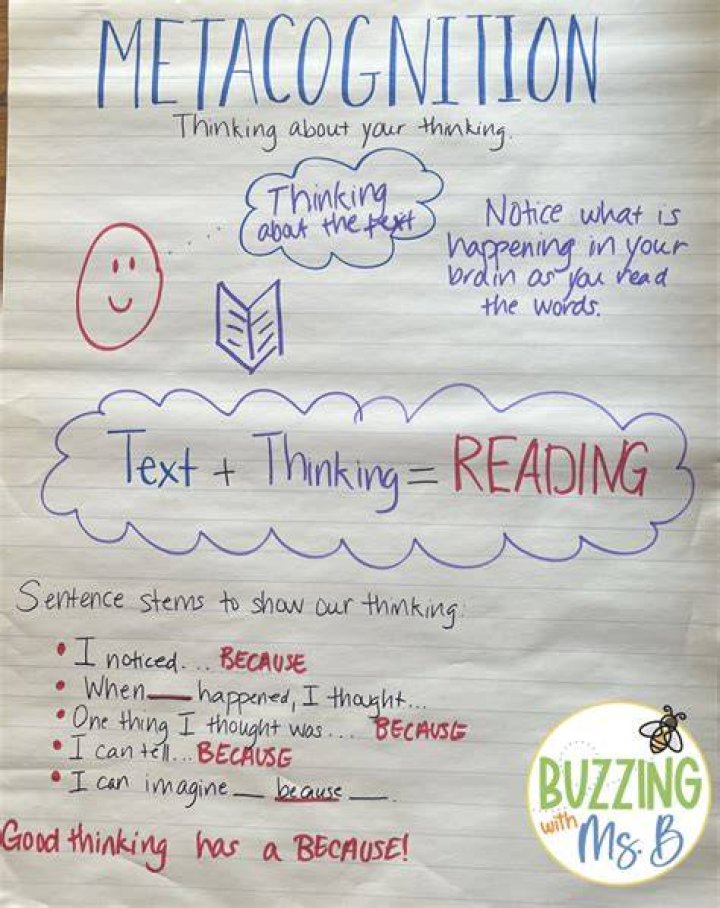 METACOGNITION
Thinking about your thinking.
Thinking
about the text
Notice what is
happening in your
brain as you read
the words.
Text + Thinking = READING
Sentence stems to show our thinking:
• I noticed... BECAUSE
• When___ happened, I thought...
• One thing I thought was... BECAUSE
• I can tell... BECAUSE
• I can imagine __ because __.
Good thinking has a BECAUSE!
BUZZING
with
Ms. B